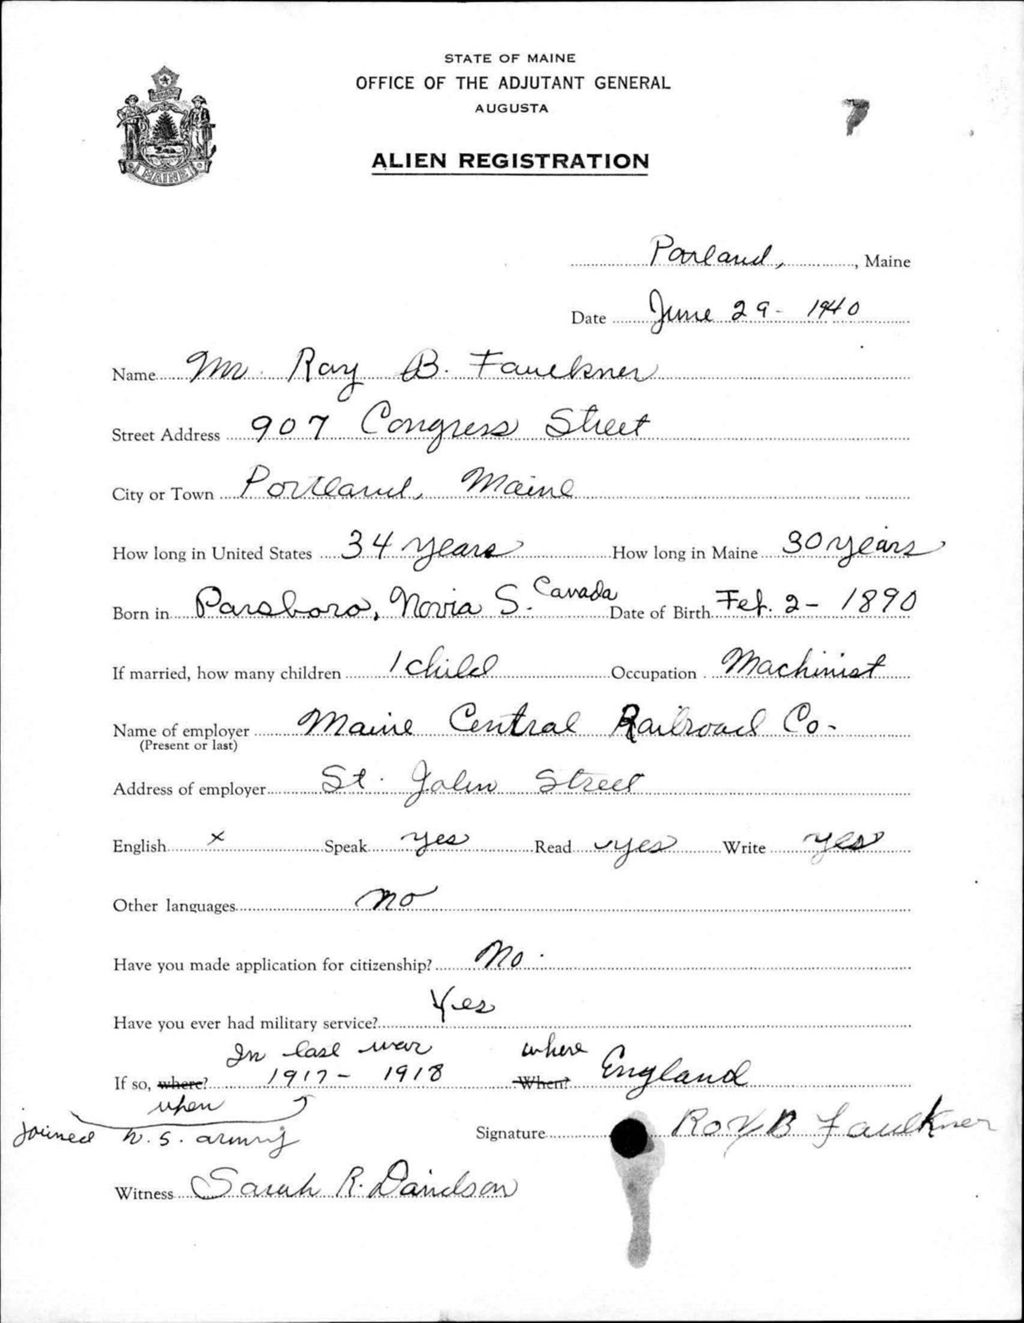 STATE OF MAINE
OFFICE OF THE ADJUTANT GENERAL
AUGUSTA
ALIEN REGISTRATION
MAINE
Portland, , Maine
Date June 29 - 1940
Name Mr. Roy B. Faulkner
Street Address 907 Congress Street
City or Town Portland, Maine
How long in United States 34 years How long in Maine 30 years
Born in Parsboro, Novia S. Canada Date of Birth Feb. 2 - 1890
If married, how many children 1 child Occupation Machinist
Name of employer Maine Central Railroad Co -
(Present or last)
Address of employer St. John Street
English x Speak yes Read yes Write yes
Other languages no
Have you made application for citizenship? No.
Have you ever had military service? Yes
In last war where
If so, where? 1917 - 1918 When? England
when
joined U.S. army
Signature Roy B Faulkner
Witness Sarah R. Davidson